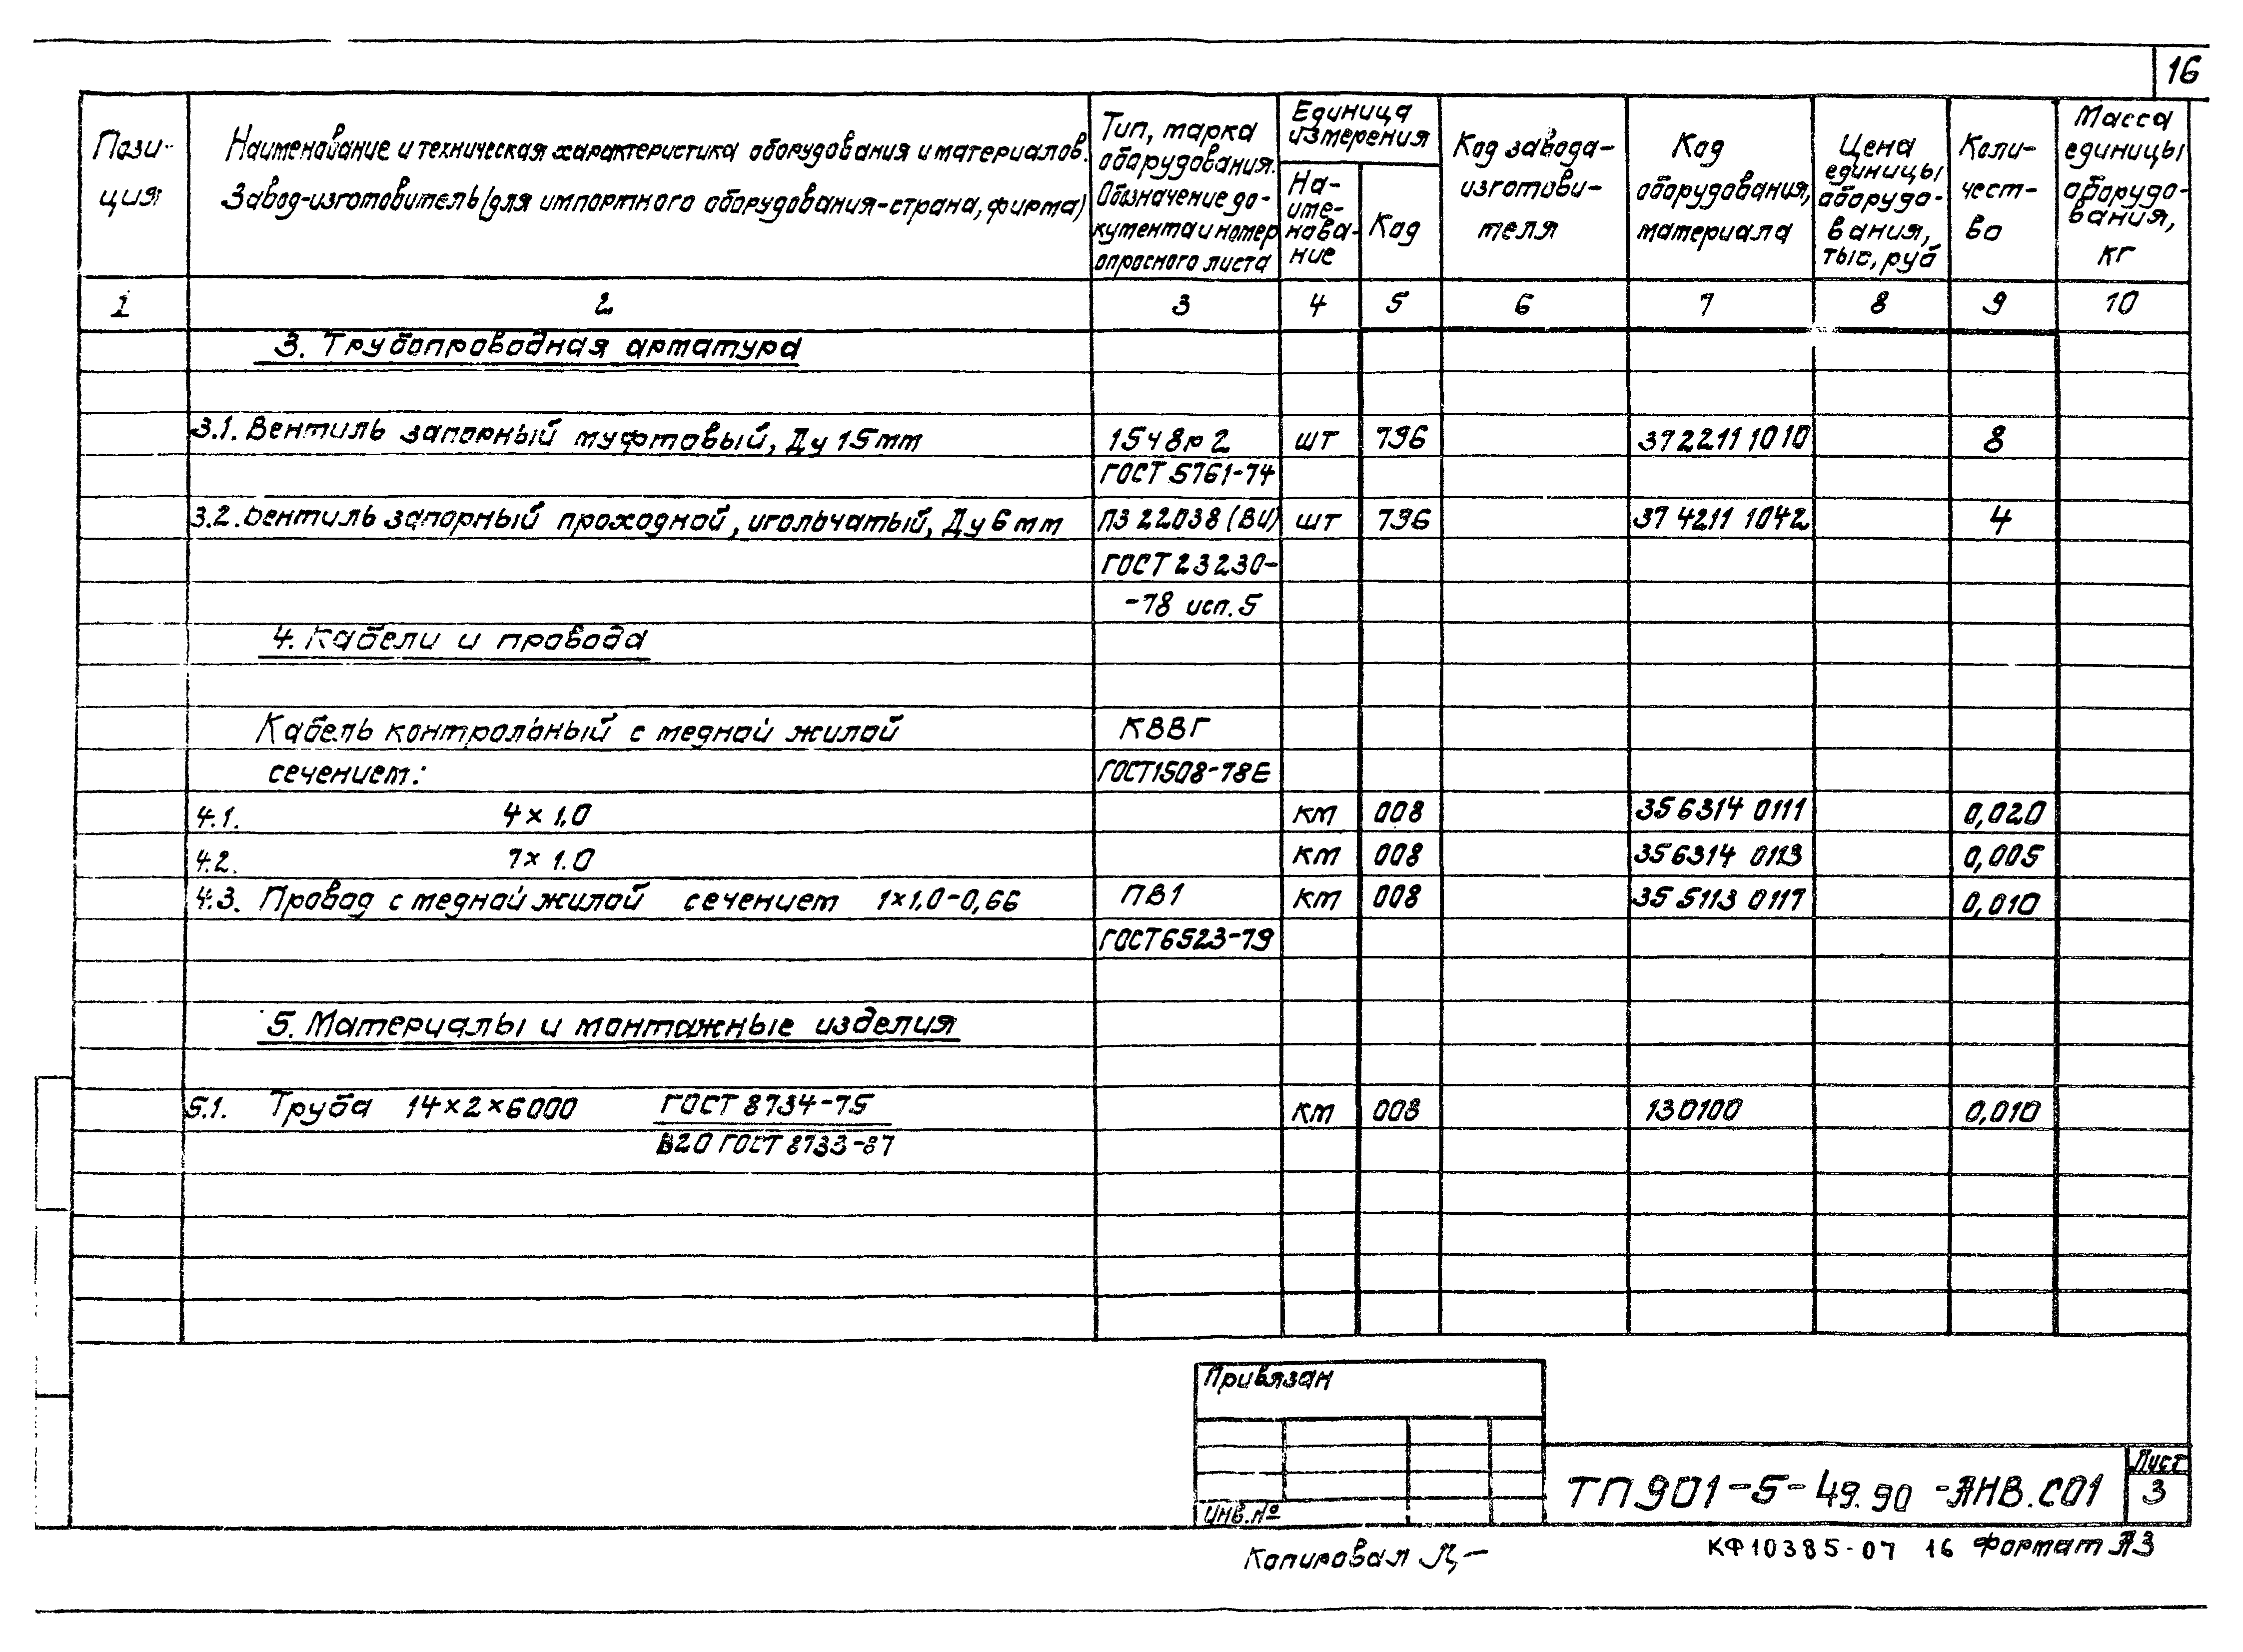 16
Пози-
ция
Наименование и техническая характеристика оборудования и материалов.
Завод-изготовитель (для импортного оборудования-страна, фирма)
Тип, марка
оборудования.
Обозначение до-
кумента и номер
опросного листа
Единица
измерения
На-
име-
нова-
ние
Код
Код завода-
изготови-
теля
Код
оборудования,
материала
Цена
единицы
оборудо-
вания,
тыс, руб
Коли-
чест-
во
Масса
единицы
оборудо-
вания,
кг
1 2 3 4 5 6 7 8 9 10
3. Трубопроводная арматура
3.1. Вентиль запорный муфтовый, Ду 15мм 15ч8р2 шт 796 372211 1010 8
ГОСТ 5761-74
3.2. Вентиль запорный проходной, игольчатый, Ду 6 мм ПЗ 22038 (ВИ) шт 796 37 4211 1042 4
ГОСТ 23230-
-78 исп. 5
4. Кабели и провода
Кабель контрольный с медной жилой КВВГ
сечением: ГОСТ1508-78Е
4.1. 4×1,0 км 008 356314 0111 0,020
4.2. 7×1.0 км 008 356314 0113 0,005
4.3. Провод с медной жилой сечением 1×1,0-0,66 ПВ1 км 008 35 5113 0117 0,010
ГОСТ6523-79
5. Материалы и монтажные изделия
5.1. Труба 14×2×6000 ГОСТ 8734-75 км 008 130100 0,010
В20 ГОСТ 8733-87
Привязан
Инв.№
ТП901-5-49.90 -АНВ.СО1
Лист
3
Копировал
КФ10385-07 16 Формат А3